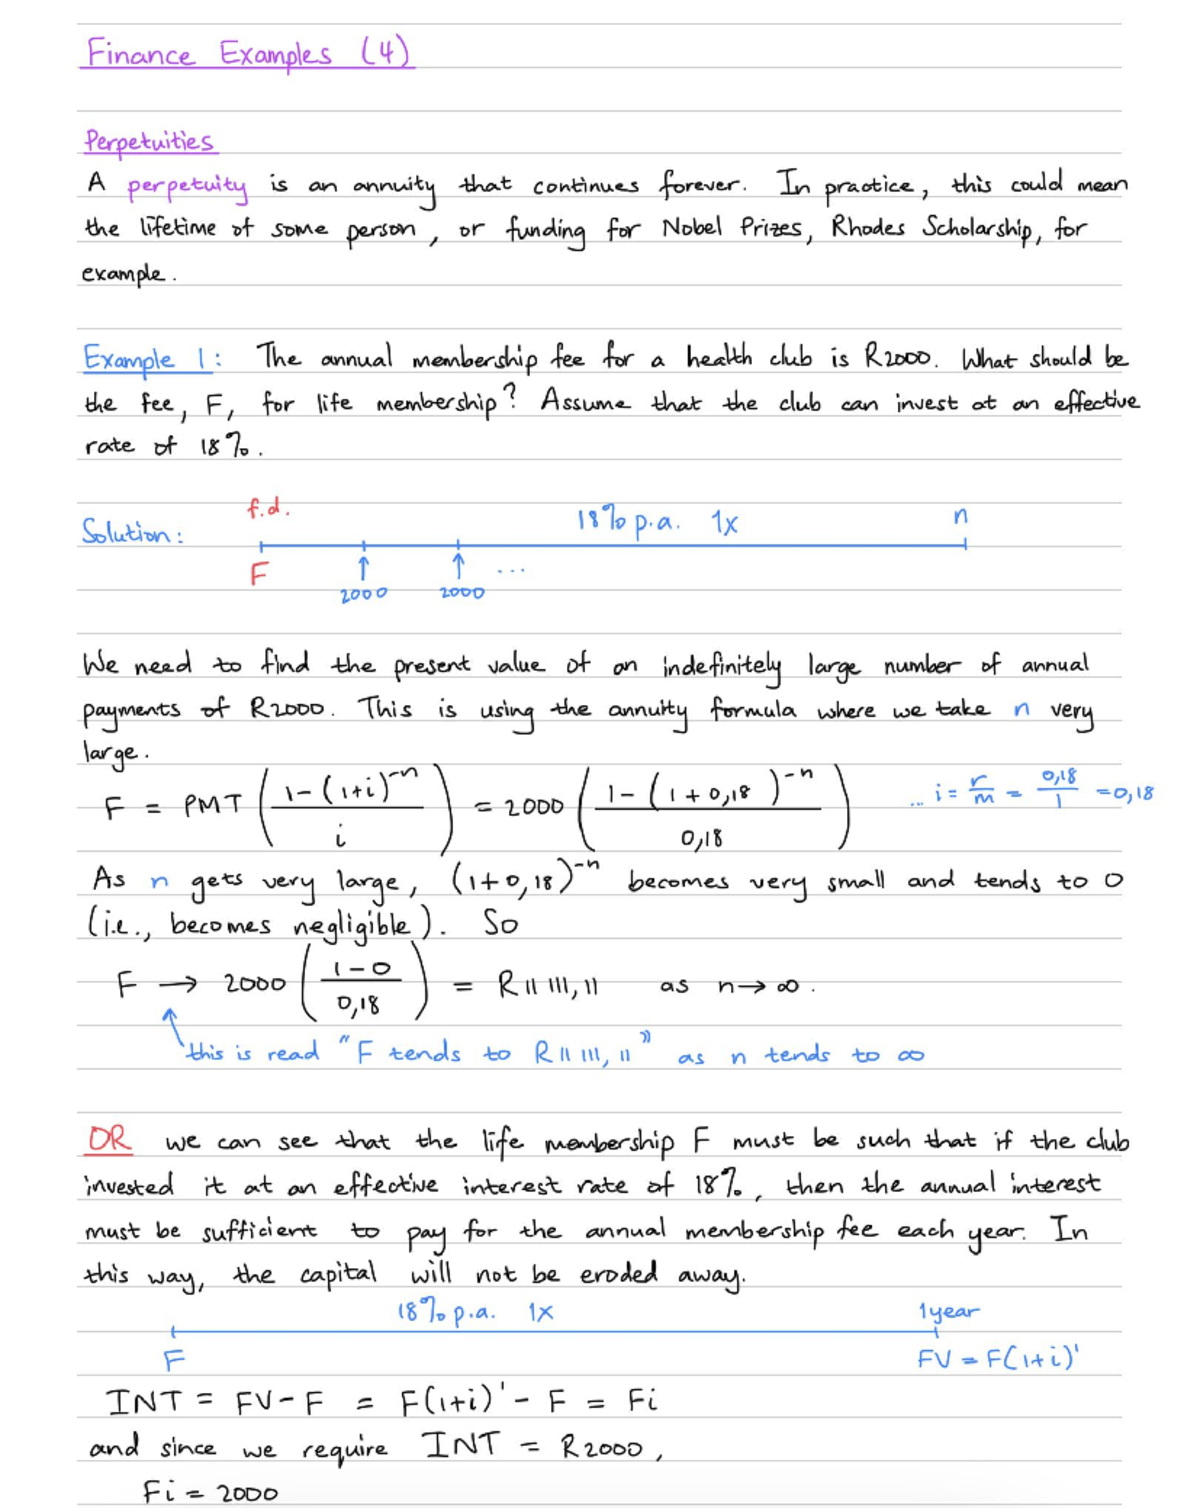 Finance Examples (4)
Perpetuities
A perpetuity is an annuity that continues forever. In practice, this could mean
the lifetime of some person, or funding for Nobel Prizes, Rhodes Scholarship, for
example.
Example 1: The annual membership fee for a health club is R2000. What should be
the fee, F, for life membership? Assume that the club can invest at an effective
rate of 18%.
f.d.
Solution: 18% p.a. 1x n
F ↑ ↑ ...
2000 2000
We need to find the present value of an indefinitely large number of annual
payments of R2000. This is using the annuity formula where we take n very
large.
F = PMT ( (1-(1+i)^-n) / i ) = 2000 ( (1-(1+0,18)^-n) / 0,18 ) ... i = r/m = 0,18/1 = 0,18
As n gets very large, (1+0,18)^-n becomes very small and tends to 0
(i.e., becomes negligible). So
F → 2000 ( (1-0) / 0,18 ) = R11 111,11 as n→∞.
this is read "F tends to R11 111,11" as n tends to ∞
OR we can see that the life membership F must be such that if the club
invested it at an effective interest rate of 18%, then the annual interest
must be sufficient to pay for the annual membership fee each year. In
this way, the capital will not be eroded away.
18% p.a. 1x 1year
F FV = F(1+i)^1
INT = FV-F = F(1+i)^1 - F = Fi
and since we require INT = R2000,
Fi = 2000